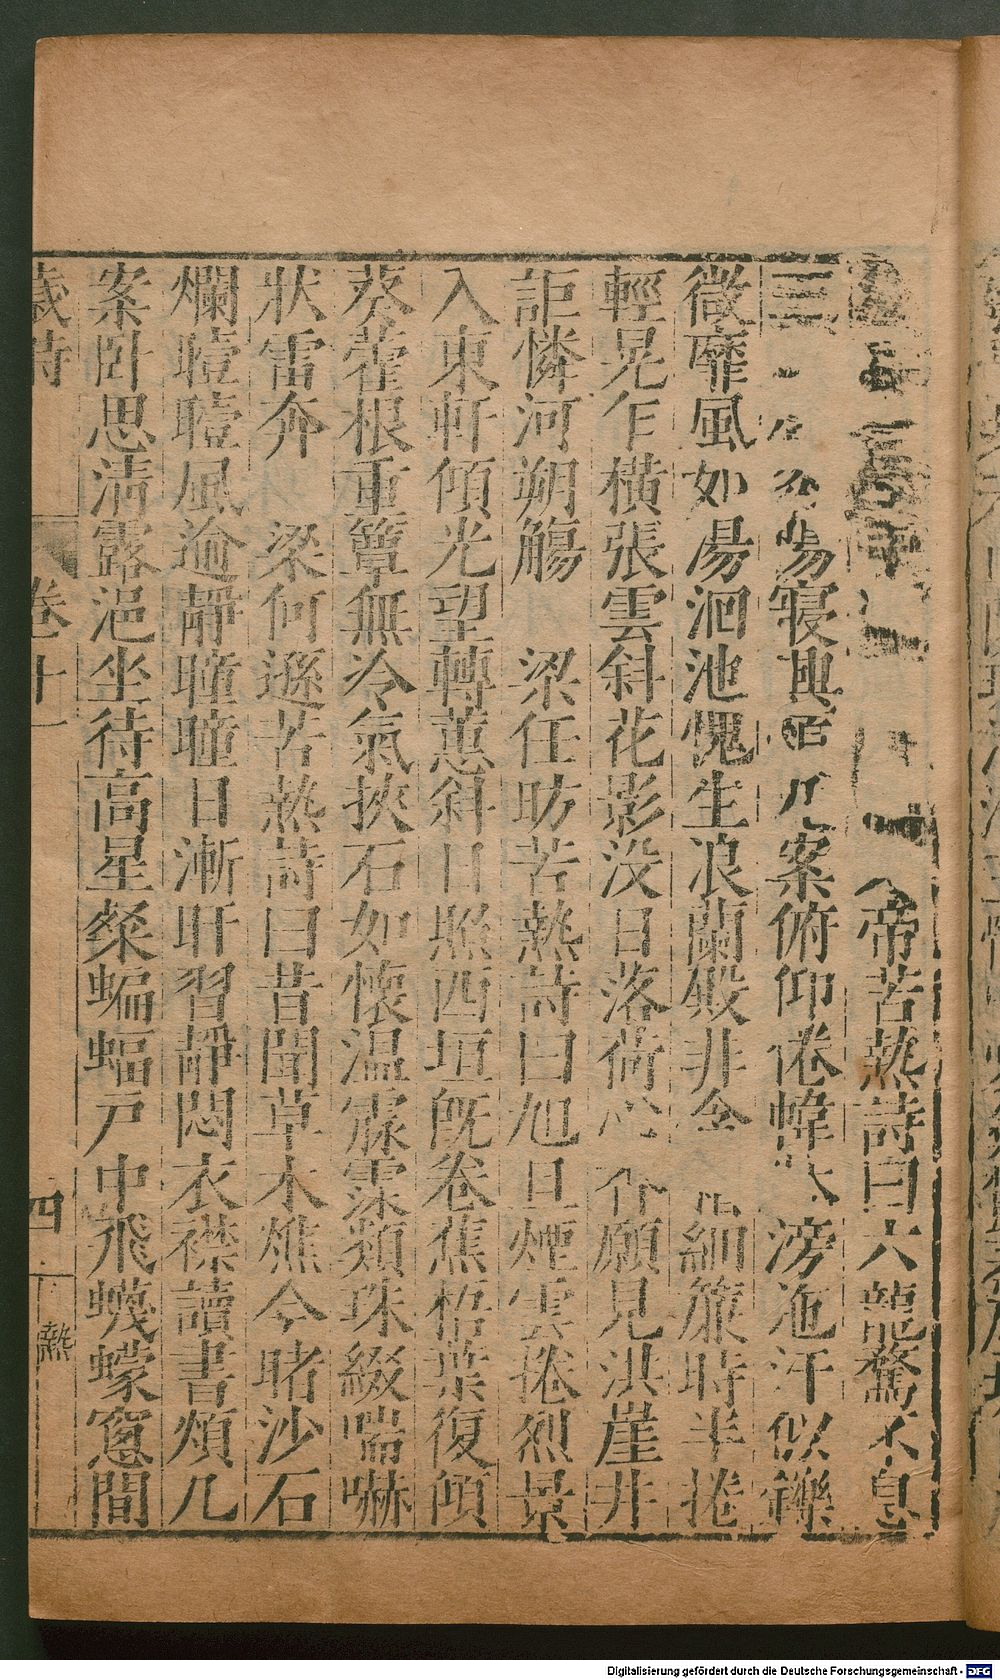 帝苦熱詩曰六龍騖不息
三
寢興
几案俯仰倦幃
滂沲汗似鑠
微靡風如湯洄池愧生浪蘭殿非含
細簾時半捲
輕幌乍橫張雲斜花影没日落荷心
願見洪崖井
詎憐河朔觴　梁任昉苦熱詩曰旭旦煙雲捲烈景
入東軒傾光望轉蕙斜日照西垣既卷蕉梧葉復傾
葵藿根重簟無冷氣挾石如懷温霡霂類珠綴喘嚇
狀雷奔　梁何遜苦熱詩曰昔聞草木燋今睹沙石
爛曀曀風逾靜曈曈日漸旰習靜悶衣襟讀書煩几
案卧思清露浥坐待高星粲蝙蝠戸中飛蠛蠓窻間
歳時　卷十一　四　熱
Digitalisierung gefördert durch die Deutsche Forschungsgemeinschaft - DFG